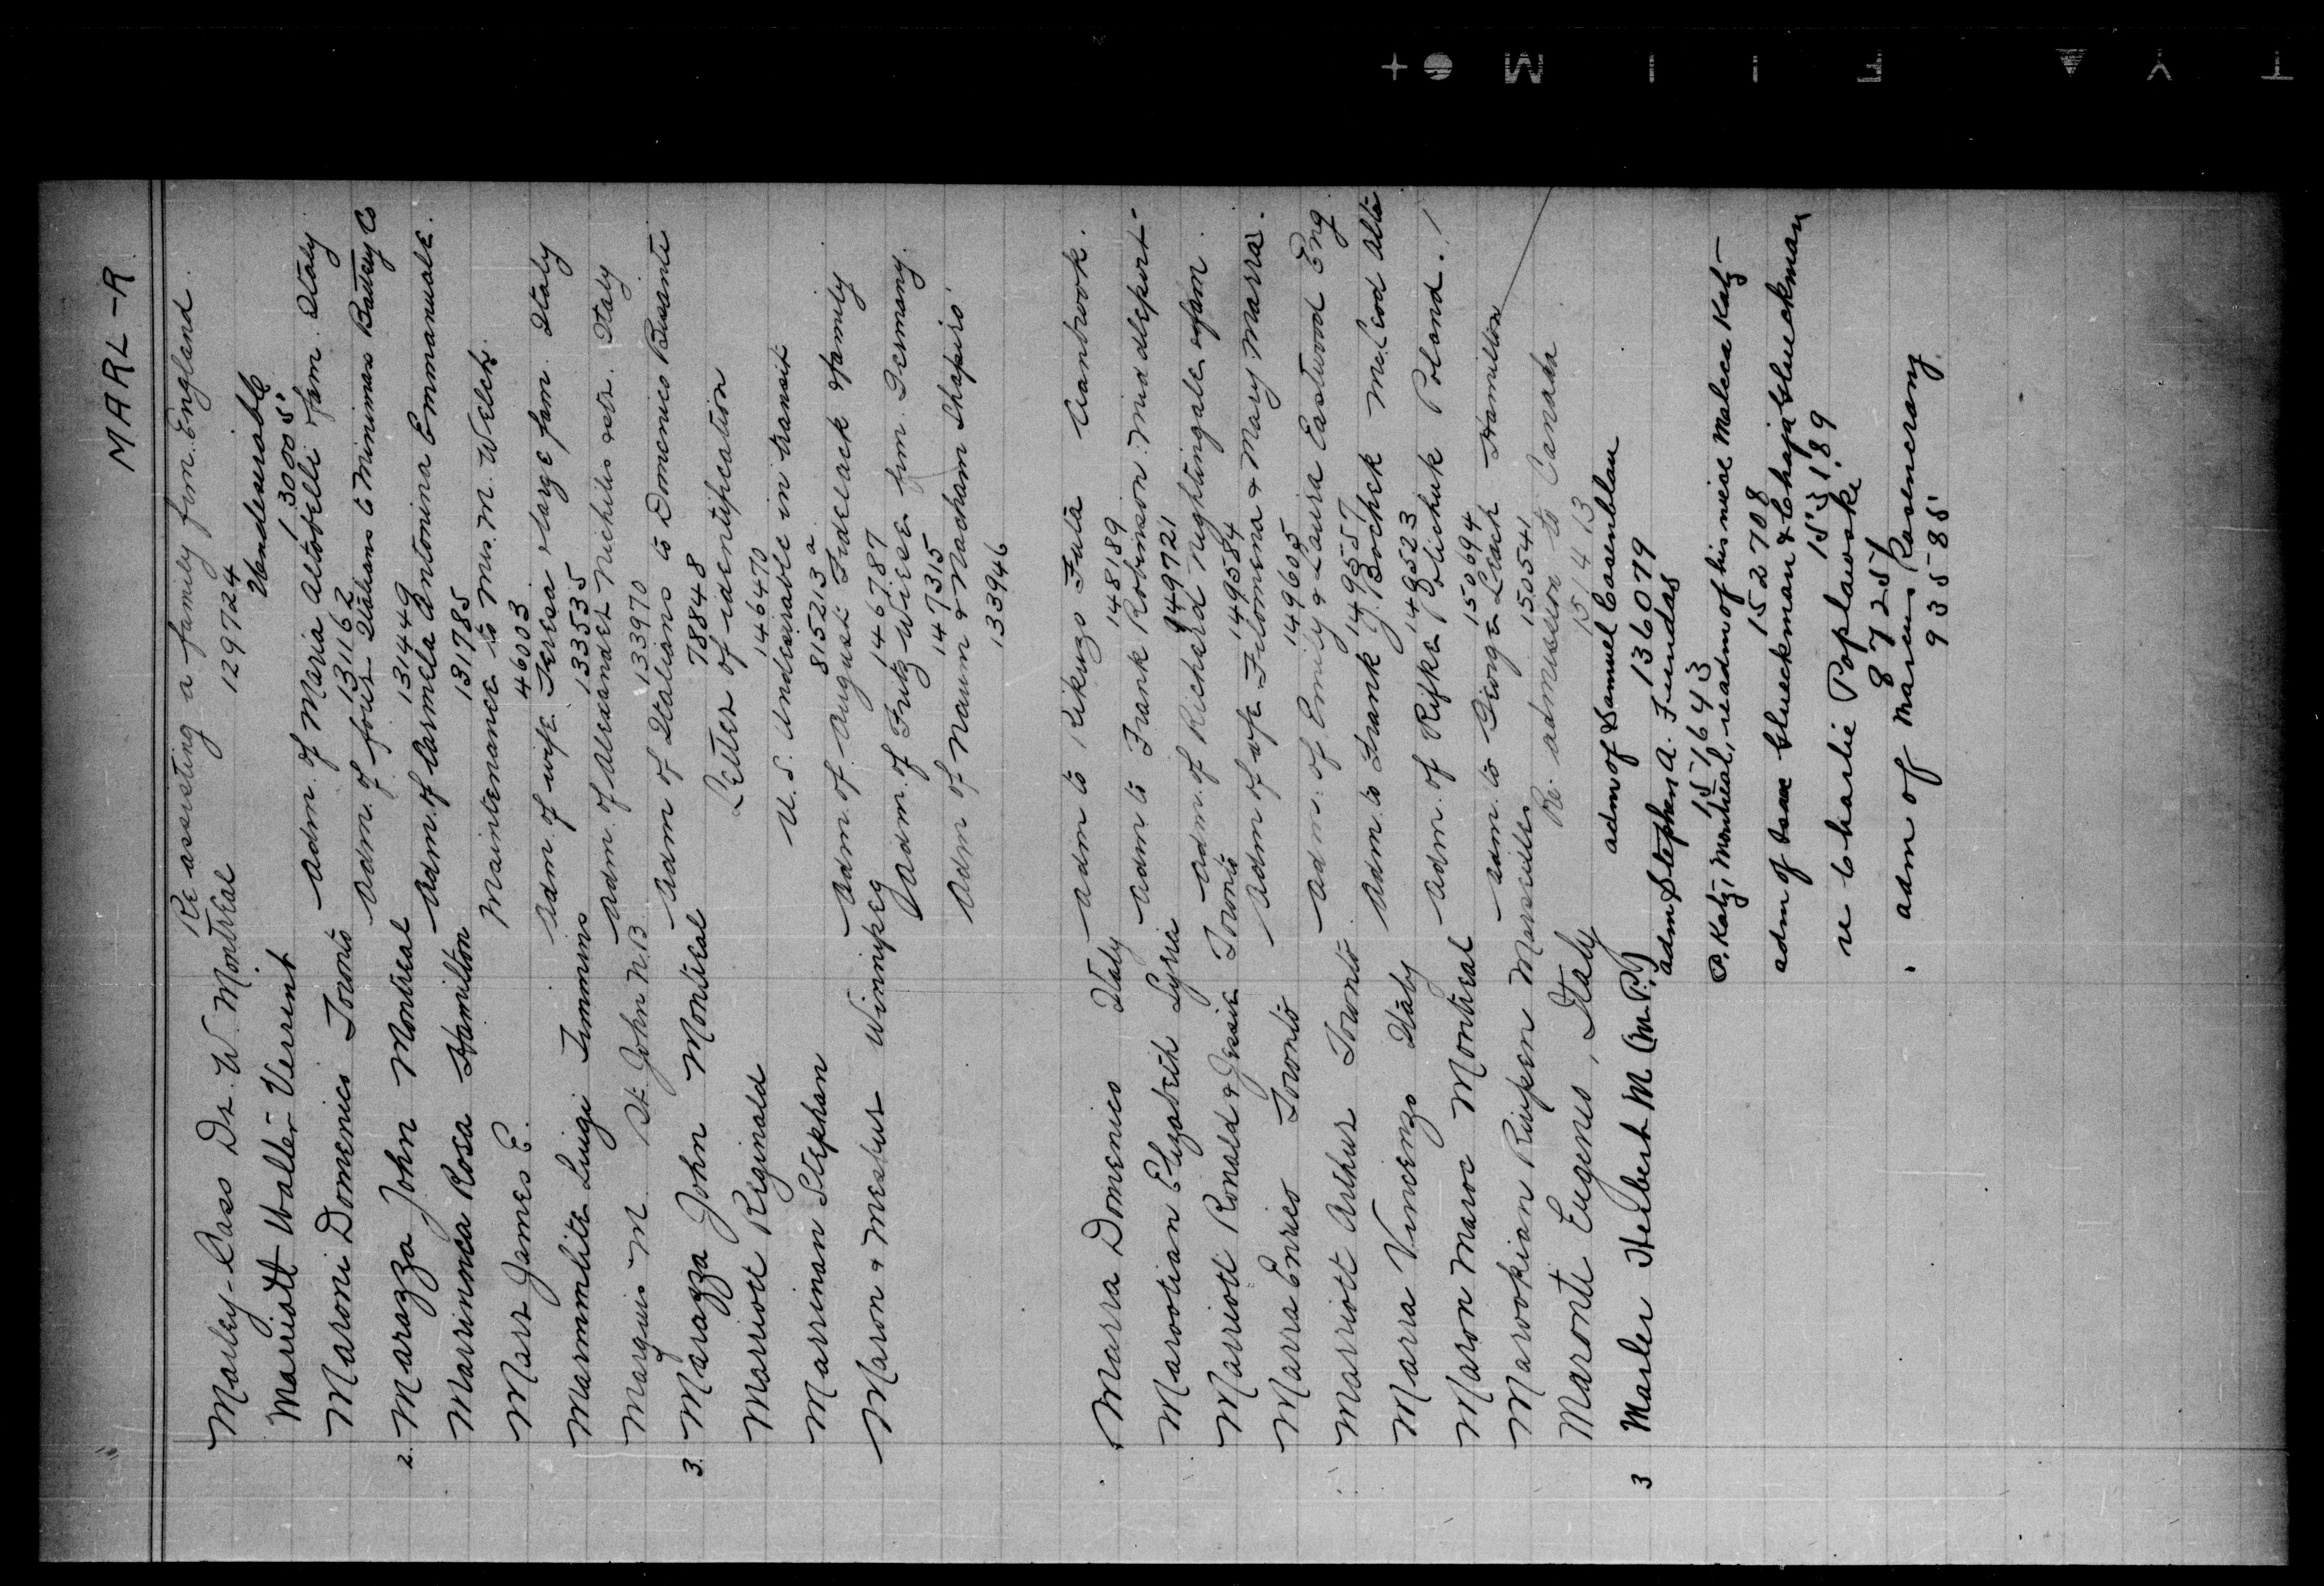 MARL-R.
Re assisting a family from England.
Marley-Cass Dr. W. Montreal 129724
Marriott Walter Verrent Undesirable 130005
Maroni Domenico Toronto Adm. of Maria Altobelli & fam. Italy 131162
Adm. of four Italians to Minimax Battery Co
2. Marazza John Montreal 131449
Adm. of Carmela Antonina Emmanuale.
Marrinnca Rosa Hamilton 131785
Marr James E. Maintenance to Mrs. M. Welch. 46003
Adm. of wife Teresa & large fam Italy
Marmmlite Luigi Timmins 133535
Adm. of Alexander Nichilis & etc. Italy
Marquis M St. John N.B 133970
Adm of Italians to Domenico Busanti
3. Marazza John Montreal 78848
Letter of identification
Marriott Reginald 146470
U.S. Undesirable in transit
Marrinan Stephan 815213 a
Adm of August Fidelack & family
Maron & Meshur Winnipeg 146787
Adm. of Fritz Wiese from Germany.
147315
Adm of Naum & Nacham Shapiro
133946
Marra Domenico Italy Adm to Kikuzo Fula Cranbrook.
148189
Marootian Elizabeth Syria Adm to Frank Robinson mid deport-
149721
Marriott Ronald & Jessie Toronto Adm. of Richard Nightingale & fam.
149584
Marra Enrico Toronto Adm of wife Filomena & Mary Marra.
149605
Marriott Arthur Toronto. Adm. of Emily & Laura Eastwood Eng
149557
Marra Vincenzo Italy Adm. to Frank J. Bochek McLeod Alta
149523
Maron Maroc Montreal Adm. of Rifke Polichuk Poland.
150694
Marookian Rupen Marseilles Adm. to George Leach Hamilton
150541
Maronti Eugenio, Italy Re. admission to Canada
151413
3 Marler Herbert M (M.P.) adm of Samuel Cosenblau
136079
adm Stephen A. Fundas
151643
P. Katz, Montreal, re adm of his niece Malcca Katz-
152708
adm of Isaac Glueckman & Chaja Glueckman
153189
re Charlie Poplawski
87257
adm of Marcus Rosencranz
93588
FILM